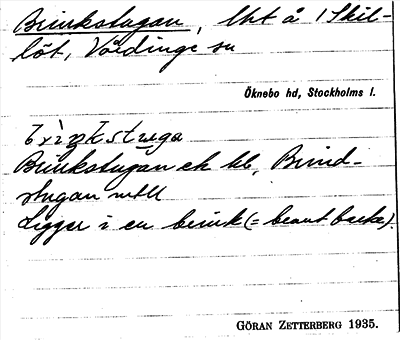 Brinkstugan, lht å 1 Skil-
löt, Vårdinge sn
Öknebo hd, Stockholms l.
brìŋkstuga
Brinkstugan ek bl, Brind-
stugan mtll
Ligger i en brink (= brant backe).
GÖRAN ZETTERBERG 1935.